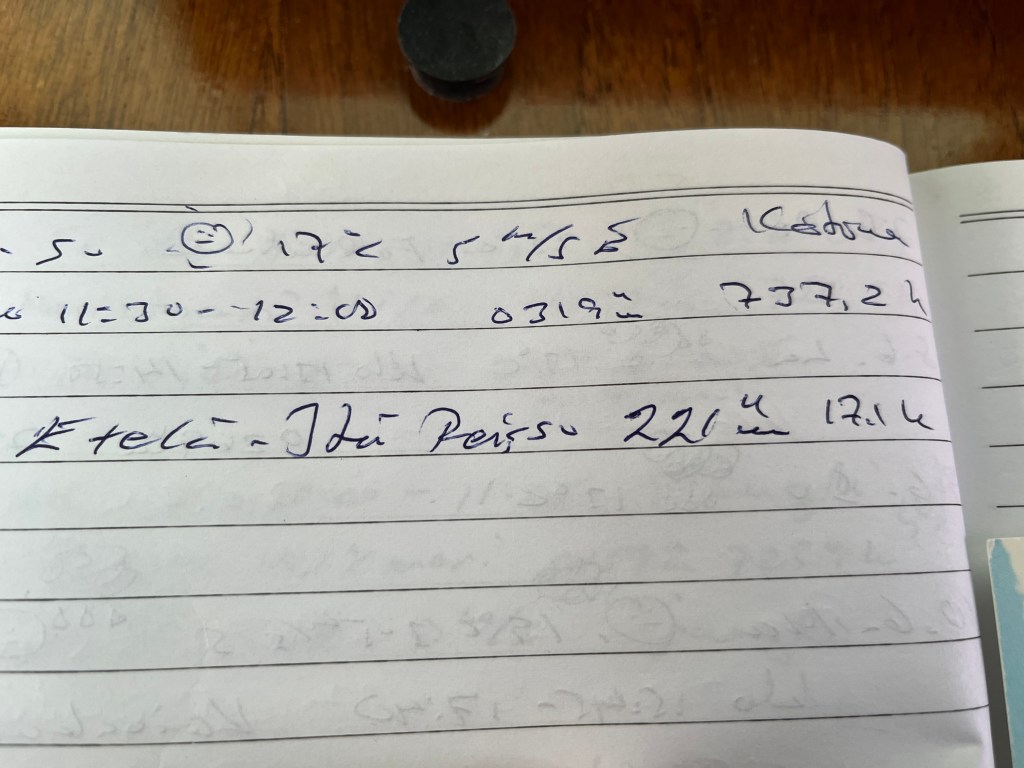 . Su 17°C 5 m/s E
11:30 - 12:00 0319 m 737,2 h
Etelä-Itä Reissu 221 m 17.1 h